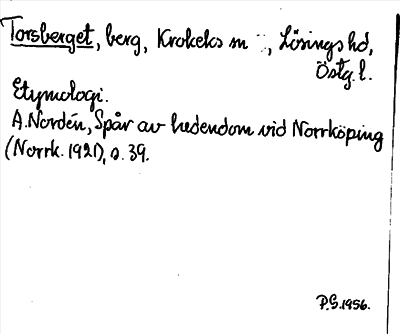 Torsberget, berg, Krokeks sn, Lösings hd,
Östg. l.
Etymologi.
A. Nordén, Spår av hedendom vid Norrköping
(Norrk. 1921), s. 39.
P.G. 1956.